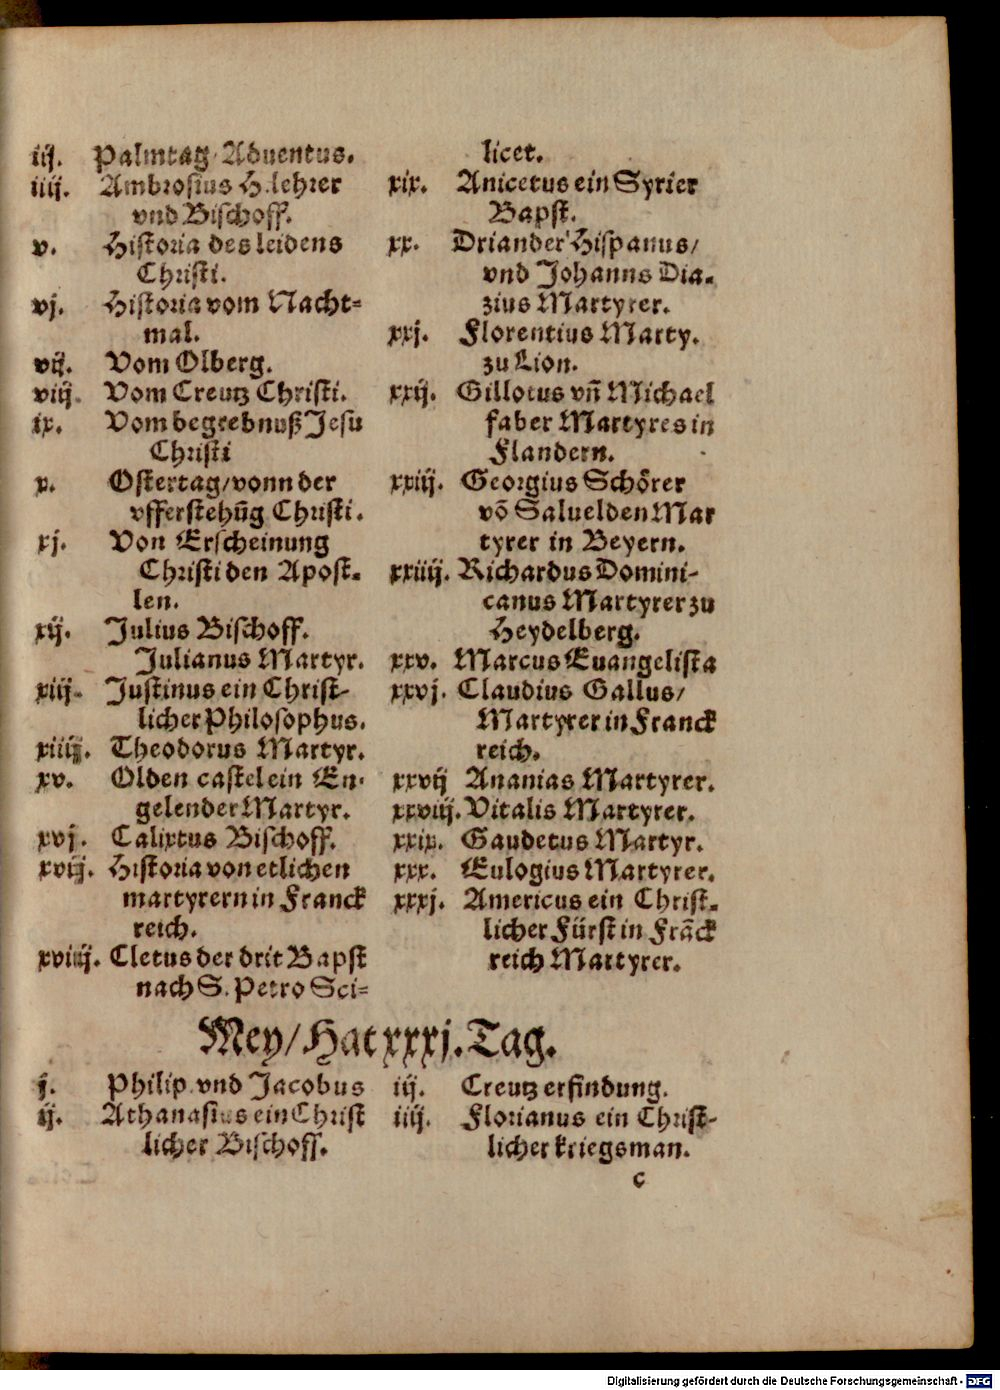 iij. Palmtag Aduentus.
iiij. Ambrosius H. lehrer
vnd Bischoff.
v. Historia des leidens
Christi.
vj. Historia vom Nacht-
mal.
vij. Vom Olberg.
viij. Vom Creutz Christi.
ix. Vom begrebnuß Jesu
Christi
x. Ostertag/vonn der
vfferstehūg Christi.
xj. Von Erscheinung
Christi den Apost-
len.
xij. Julius Bischoff.
Julianus Martyr.
xiij. Justinus ein Christ-
licher Philosophus.
xiiij. Theodorus Martyr.
xv. Olden castel ein En-
gelender Martyr.
xvj. Calixtus Bischoff.
xvij. Historia von etlichen
martyrern in Franck
reich.
xviij. Cletus der drit Bapst
nach S. Petro Sci-
licet.
xix. Anicetus ein Syrier
Bapst.
xx. Driander Hispanus/
vnd Johanns Dia-
zius Martyrer.
xxj. Florentius Marty.
zu Lion.
xxij. Gillotus vñ Michael
faber Martyres in
Flandern.
xxiij. Georgius Schörer
võ Saluelden Mar
tyrer in Beyern.
xxiiij. Richardus Domini-
canus Martyrer zu
Heydelberg.
xxv. Marcus Euangelista
xxvj. Claudius Gallus/
Martyrer in Franck
reich.
xxvij Ananias Martyrer.
xxviij. Vitalis Martyrer.
xxix. Gaudetus Martyr.
xxx. Eulogius Martyrer.
xxxj. Americus ein Christ-
licher Fürst in Frāck
reich Martyrer.
Mey/Hat xxxj. Tag.
j. Philip vnd Jacobus
ij. Athanasius ein Christ
licher Bischoff.
iij. Creutz erfindung.
iiij. Florianus ein Christ-
licher kriegsman.
c
Digitalisierung gefördert durch die Deutsche Forschungsgemeinschaft - DFG